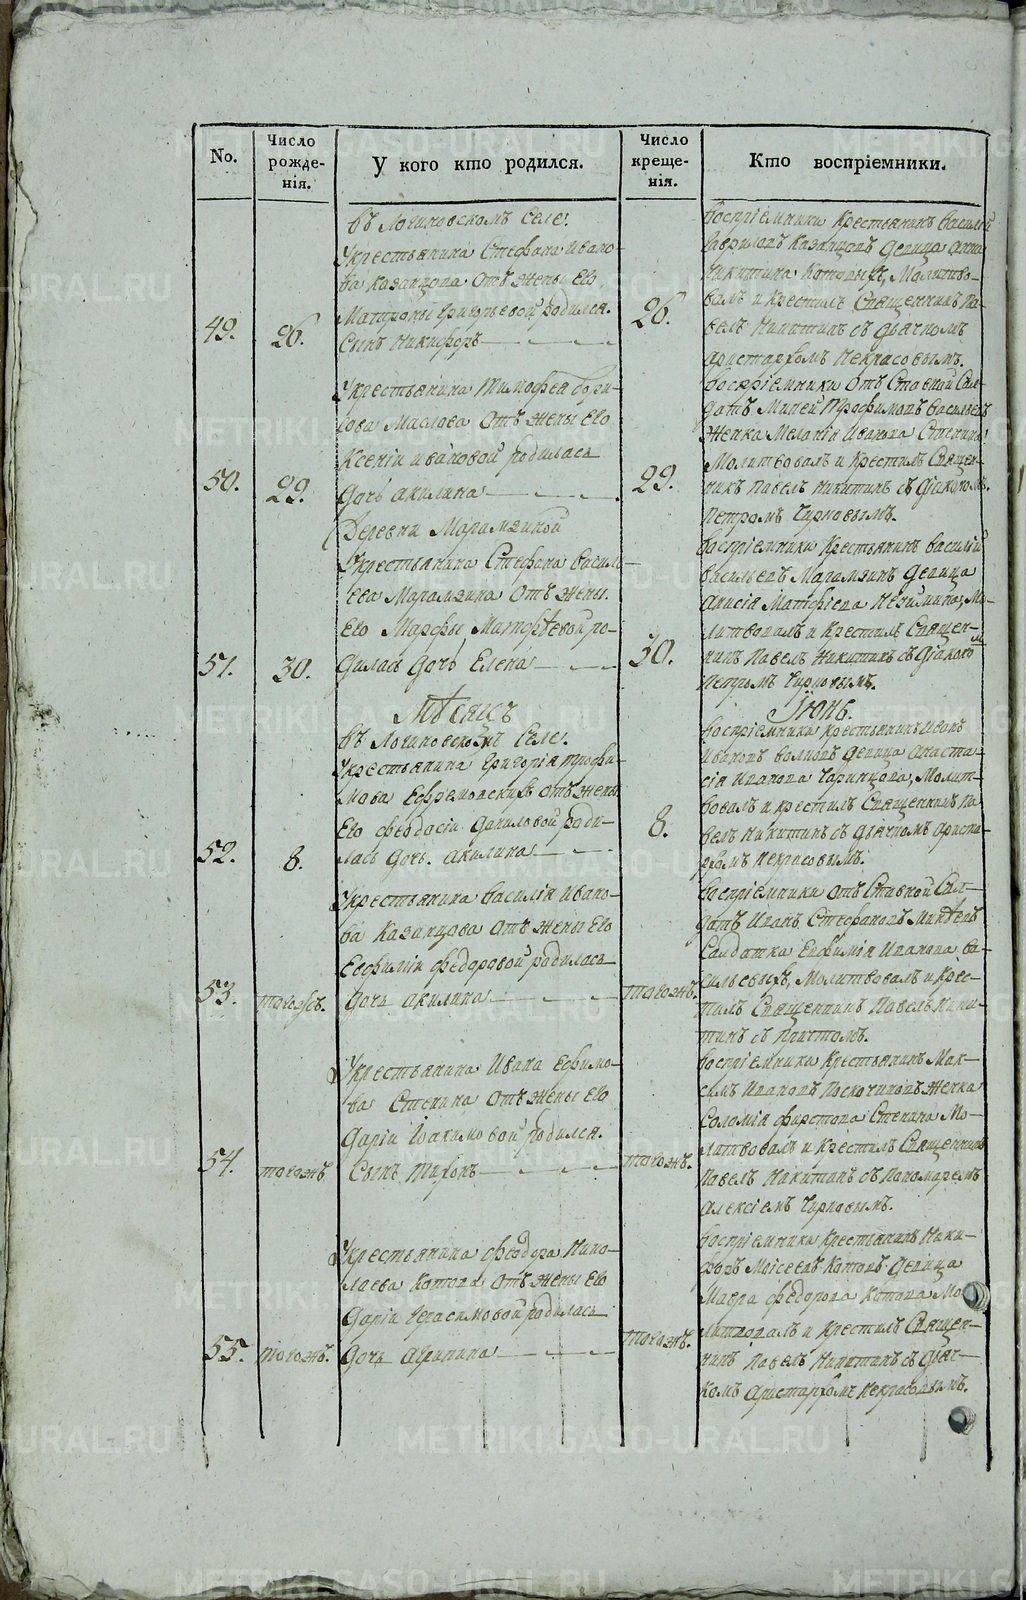 No.
Число рожде-нія.
У кого кто родился.
Число креще-нія.
Кто воспріемники.
въ Логиновскомъ Селе:
49.
26.
Укрестьянина Стефана Ивано-
ва Казанцова отъ жены Его
Матроны Григорьевой родился.
Сынъ Никифоръ
26.
Воспріемники Крестьянинъ Василей
Гавриловъ Казанцовъ девица Анна
Никитина, Молитво-
валъ и Крестилъ Священникъ Па-
велъ Никитинъ съ Дьячкомъ
Аристархомъ Некрасовымъ.
50.
29.
Укрестьянина Тимофея Бори-
сова Маслова отъ жены Его
Ксеніи Ивановой родилась
Дочь Акилина
29.
Воспріемники отъ Ставной Сал-
датъ Михей Трофимовъ Васильевъ
Женка Меланія Иванова Стенина:
Молитвовалъ и Крестилъ Священ-
никъ Павелъ Никитинъ съ Діакономъ.
Петромъ Чирковымъ.
Деревни Марамзиной
51.
30.
Укрестьянина Стефана Василь-
ева Марамзина отъ жены
Его Марфы Матфѣевой ро-
дилась Дочь Елена
30.
Воспріемники Крестьянинъ Василій
Васильевъ Марамзинъ Девица
Анисія Матфіева, Мо-
литвовалъ и Крестилъ Священ-
никъ Павелъ Никитинъ съ Діакономъ
Петромъ Чирковымъ.
Мѣсяцъ
Іюнь.
въ Логиновскомъ Селе:
52.
8.
Укрестьянина Григорія Трофи-
мова Ефремовскихъ отъ жены
Его Феодосіи Даниловой роди-
лась Дочь. Акилина
8.
Воспріемники Крестьянинъ Иванъ
Ивановъ Волковъ Девица Анаста-
сія Иванова, Молит-
вовалъ и Крестилъ Священникъ Па-
велъ Никитинъ съ Дьячкомъ Ариста-
рхомъ Некрасовымъ.
53.
тогожъ.
Укрестьянина Василія Ивано-
ва Казанцова отъ жены Его
Евфиміи Федоровой родилась
Дочь Акилина
тогожъ.
Воспріемники отъ Ставной Сал-
датъ Иванъ Стефановъ
Салдатка Евфимія Иванова Ва-
сильевыхъ, Молитвовалъ и Крес-
тилъ Священникъ Павелъ Ники-
тинъ съ Причтомъ.
54.
тогожъ
Укрестьянина Ивана Ефимо-
ва Стенина отъ жены Его
Даріи Іоакимовой родился.
Сынъ Тихонъ
тогожъ.
Воспріемники Крестьянинъ Мак-
симъ Ивановъ Поскочиновъ Женка
Соломія Фирстова Стенина Мо-
литвовалъ и Крестилъ Священникъ
Павелъ Никитинъ съ Пономаремъ
Алексіемъ Чирковымъ.
55.
тогожъ.
Укрестьянина Феодора Нико-
лаева Котова отъ жены Его
Даріи Герасимовой родилась
Дочь Агрипина
тогожъ.
Воспріемники Крестьянинъ Ники-
форъ Моісеевъ Котовъ Девица
Мавра Федорова Котова Мо-
литвовалъ и Крестилъ Священ-
никъ Павелъ Никитинъ съ Дьяч-
комъ Аристархомъ Некрасовымъ.
METRIKI.GASO-URAL.RU